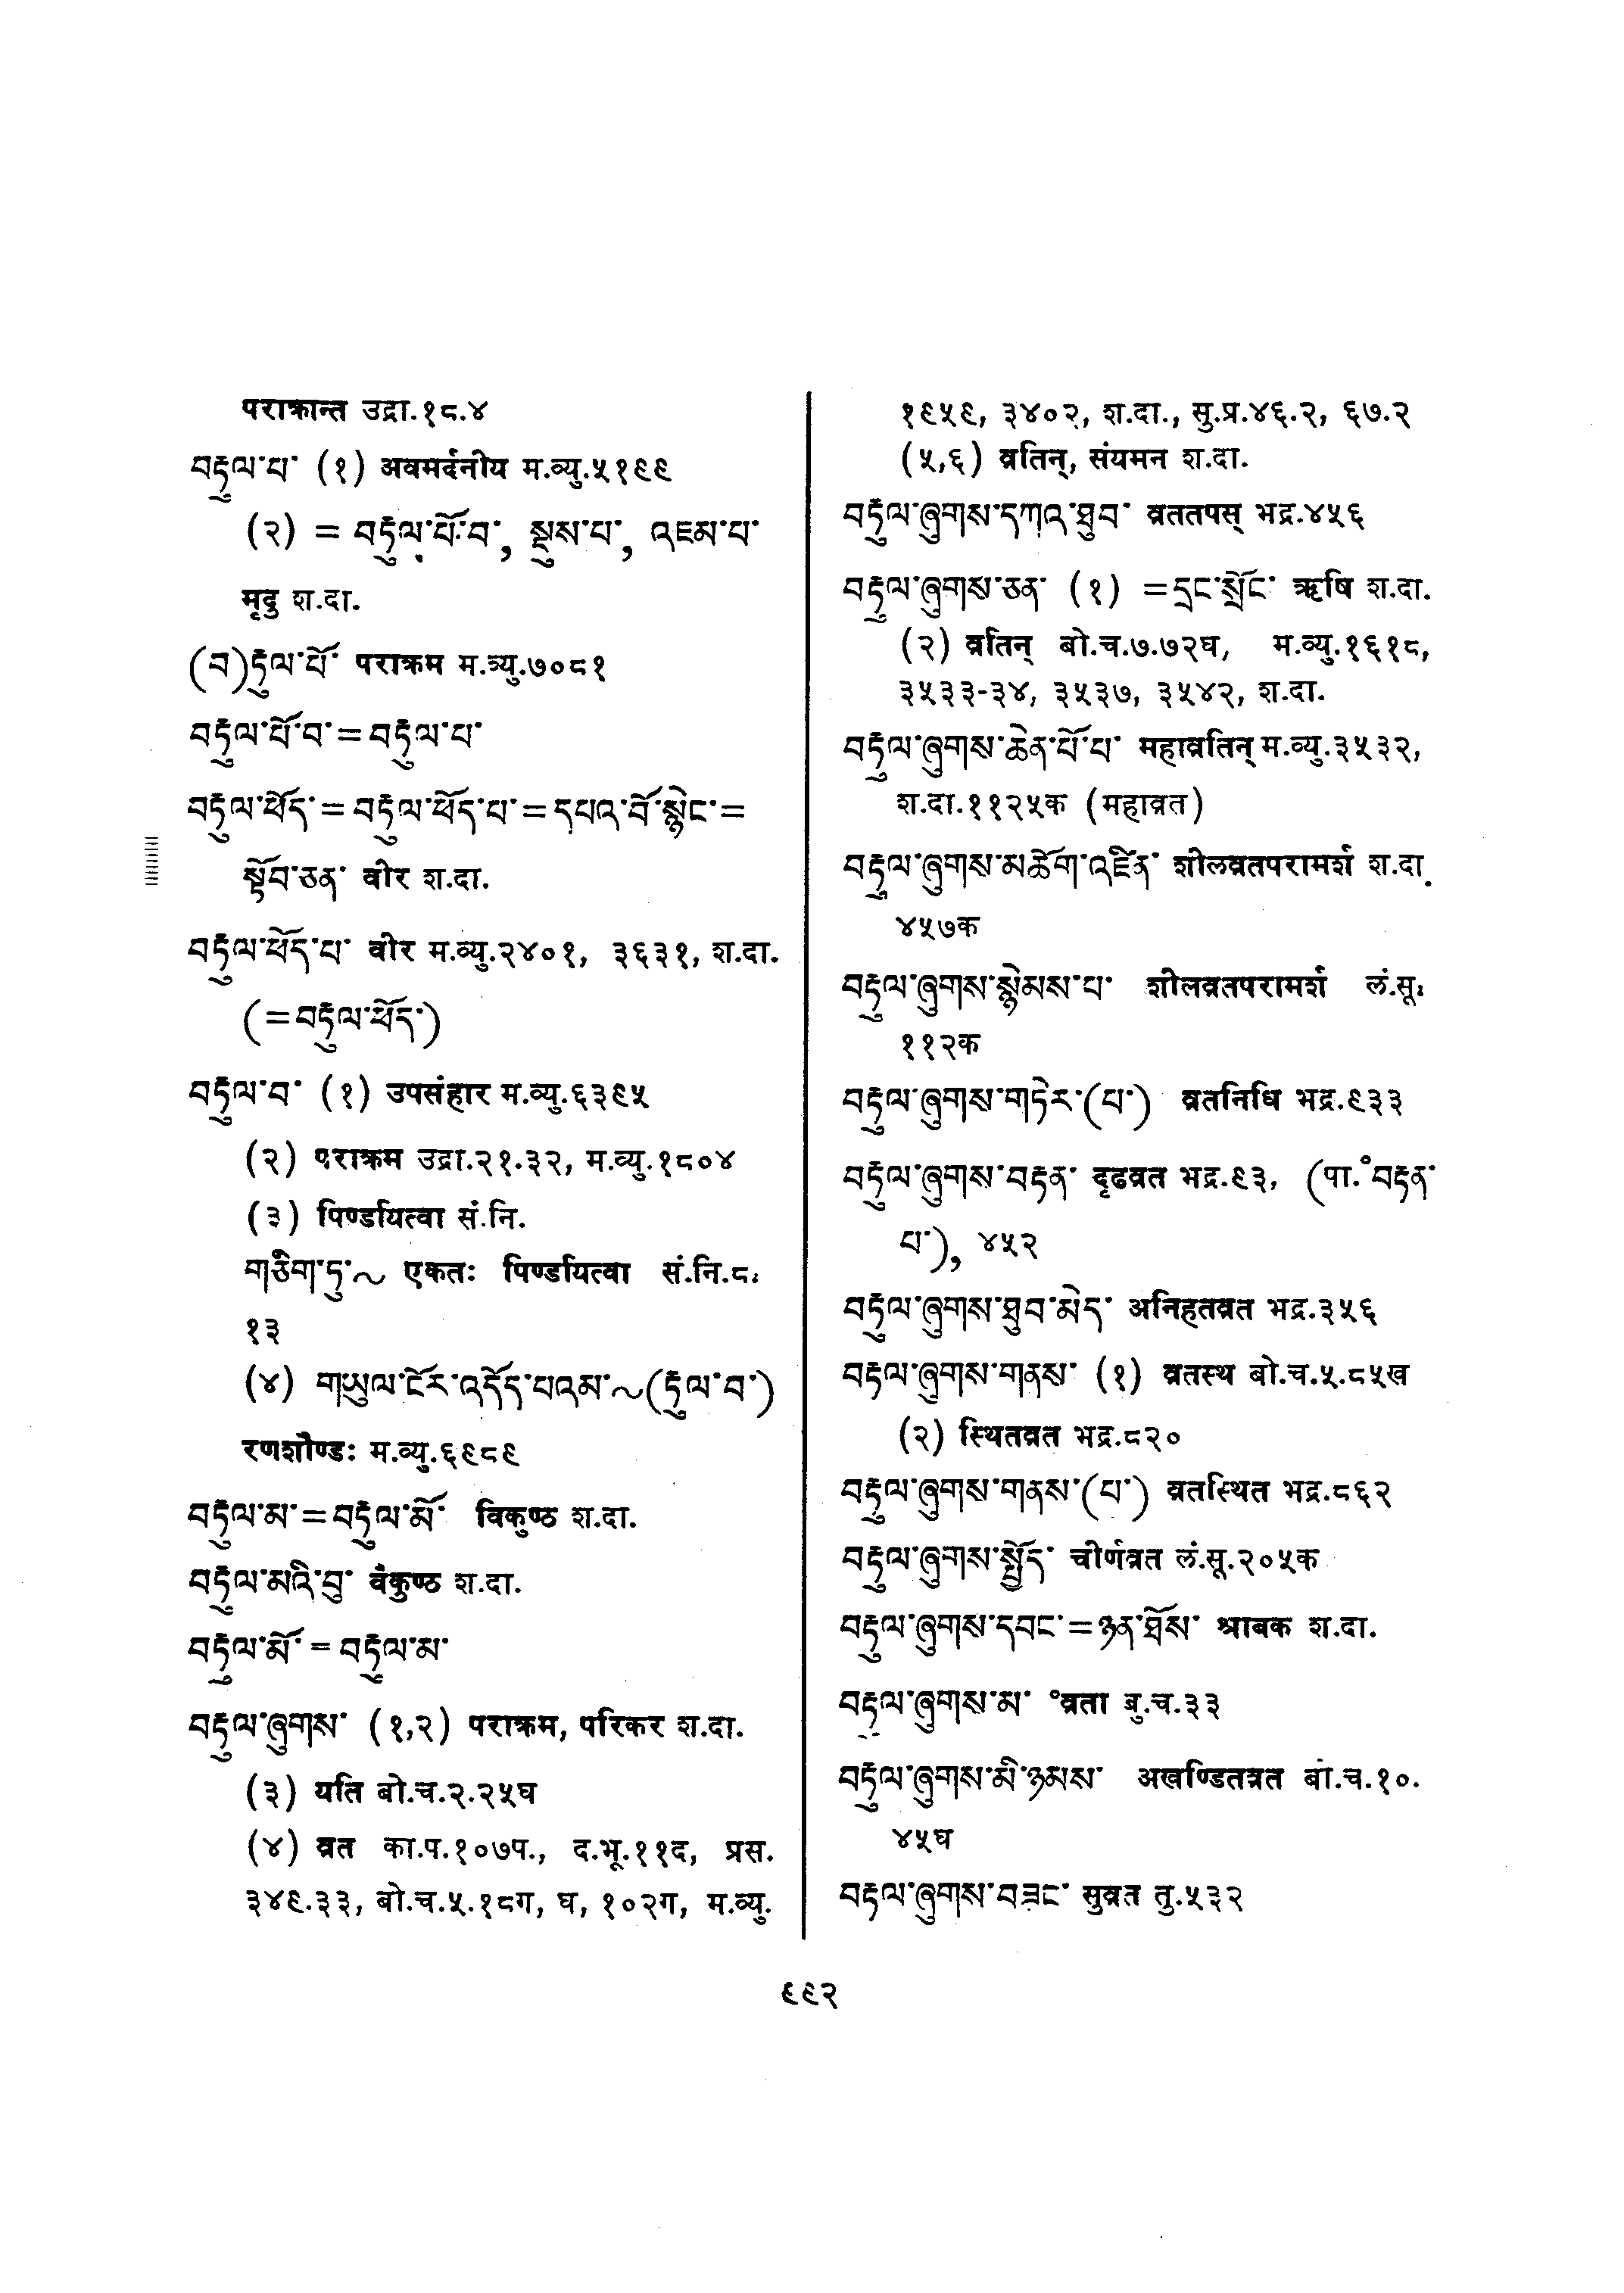 पराक्रान्त उद्रा.१८.४
བརྟུལ་པ་ (१) अवमर्दनीय म.व्यु.५१९९
(२) = བརྟུལ་པོ་བ་, སྡུས་པ་, འཇམ་པ་
मृदु श.दा.
(བ)རྟུལ་པོ་ पराक्रम म.व्यु.७०८१
བརྟུལ་པོ་བ་ = བརྟུལ་པ་
བརྟུལ་ཕོད་ = བརྟུལ་ཕོད་པ་ = དཔའ་བོ་སྙེང་ =
སྟོབ་ཅན་ वीर श.दा.
བརྟུལ་ཕོད་པ་ वीर म.व्यु.२४०१, ३६३१, श.दा.
(= བརྟུལ་ཕོད་)
བརྟུལ་བ་ (१) उपसंहार म.व्यु.६३९५
(२) पराक्रम उद्रा.२१.३२, म.व्यु.१८०४
(३) पिण्डयित्वा सं.नि.
གཅིག་ཏུ་~ एकतः पिण्डयित्वा सं.नि.८.
१३
(४) གཡུལ་ངོར་འདོད་པའམ་~(རྟུལ་བ་)
रणशौण्डः म.व्यु.६९८९
བརྟུལ་མ་ = བརྟུལ་མོ་ विकुण्ठ श.दा.
བརྟུལ་མའི་བུ་ वैकुण्ठ श.दा.
བརྟུལ་མོ་ = བརྟུལ་མ་
བརྟུལ་ཞུགས་ (१,२) पराक्रम, परिकर श.दा.
(३) यति बो.च.२.२५घ
(४) व्रत का.प.१०७प., द.भू.११द, प्रस.
३४९.३३, बो.च.५.१८ग, घ, १०२ग, म.व्यु.
१९५९, ३४०२, श.दा., सु.प्र.४६.२, ६७.२
(५,६) व्रतिन्, संयमन श.दा.
བརྟུལ་ཞུགས་དཀའ་ཐུབ་ व्रततपस् भद्र.४५६
བརྟུལ་ཞུགས་ཅན་ (१) = དྲང་སྲོང་ ऋषि श.दा.
(२) व्रतिन् बो.च.७.७२घ, म.व्यु.१६१८,
३५३३-३४, ३५३७, ३५४२, श.दा.
བརྟུལ་ཞུགས་ཆེན་པོ་པ་ महाव्रतिन् म.व्यु.३५३२,
श.दा.११२५क (महाव्रत)
བརྟུལ་ཞུགས་མཆོག་འཛིན་ शीलव्रतपरामर्श श.दा.
४५७क
བརྟུལ་ཞུགས་སྙེམས་པ་ शीलव्रतपरामर्श लं.सू.
११२क
བརྟུལ་ཞུགས་གཏེར་(པ་) व्रतनिधि भद्र.९३३
བརྟུལ་ཞུགས་བརྟན་ दृढव्रत भद्र.९३, (पा.°བརྟན་
པ་), ४५२
བརྟུལ་ཞུགས་ཐུབ་མེད་ अनिहतव्रत भद्र.३५६
བརྟུལ་ཞུགས་གནས་ (१) व्रतस्थ बो.च.५.८५ख
(२) स्थितव्रत भद्र.८२०
བརྟུལ་ཞུགས་གནས་(པ་) व्रतस्थित भद्र.८६२
བརྟུལ་ཞུགས་སྤྱོད་ चीर्णव्रत लं.सू.२०५क
བརྟུལ་ཞུགས་དབང་ = ཉན་ཐོས་ श्रावक श.दा.
བརྟུལ་ཞུགས་མ་ °व्रता बु.च.३३
བརྟུལ་ཞུགས་མི་ཉམས་ अखण्डितव्रत बो.च.१०.
४५घ
བརྟུལ་ཞུགས་བཟང་ सुव्रत तु.५३२
९९२